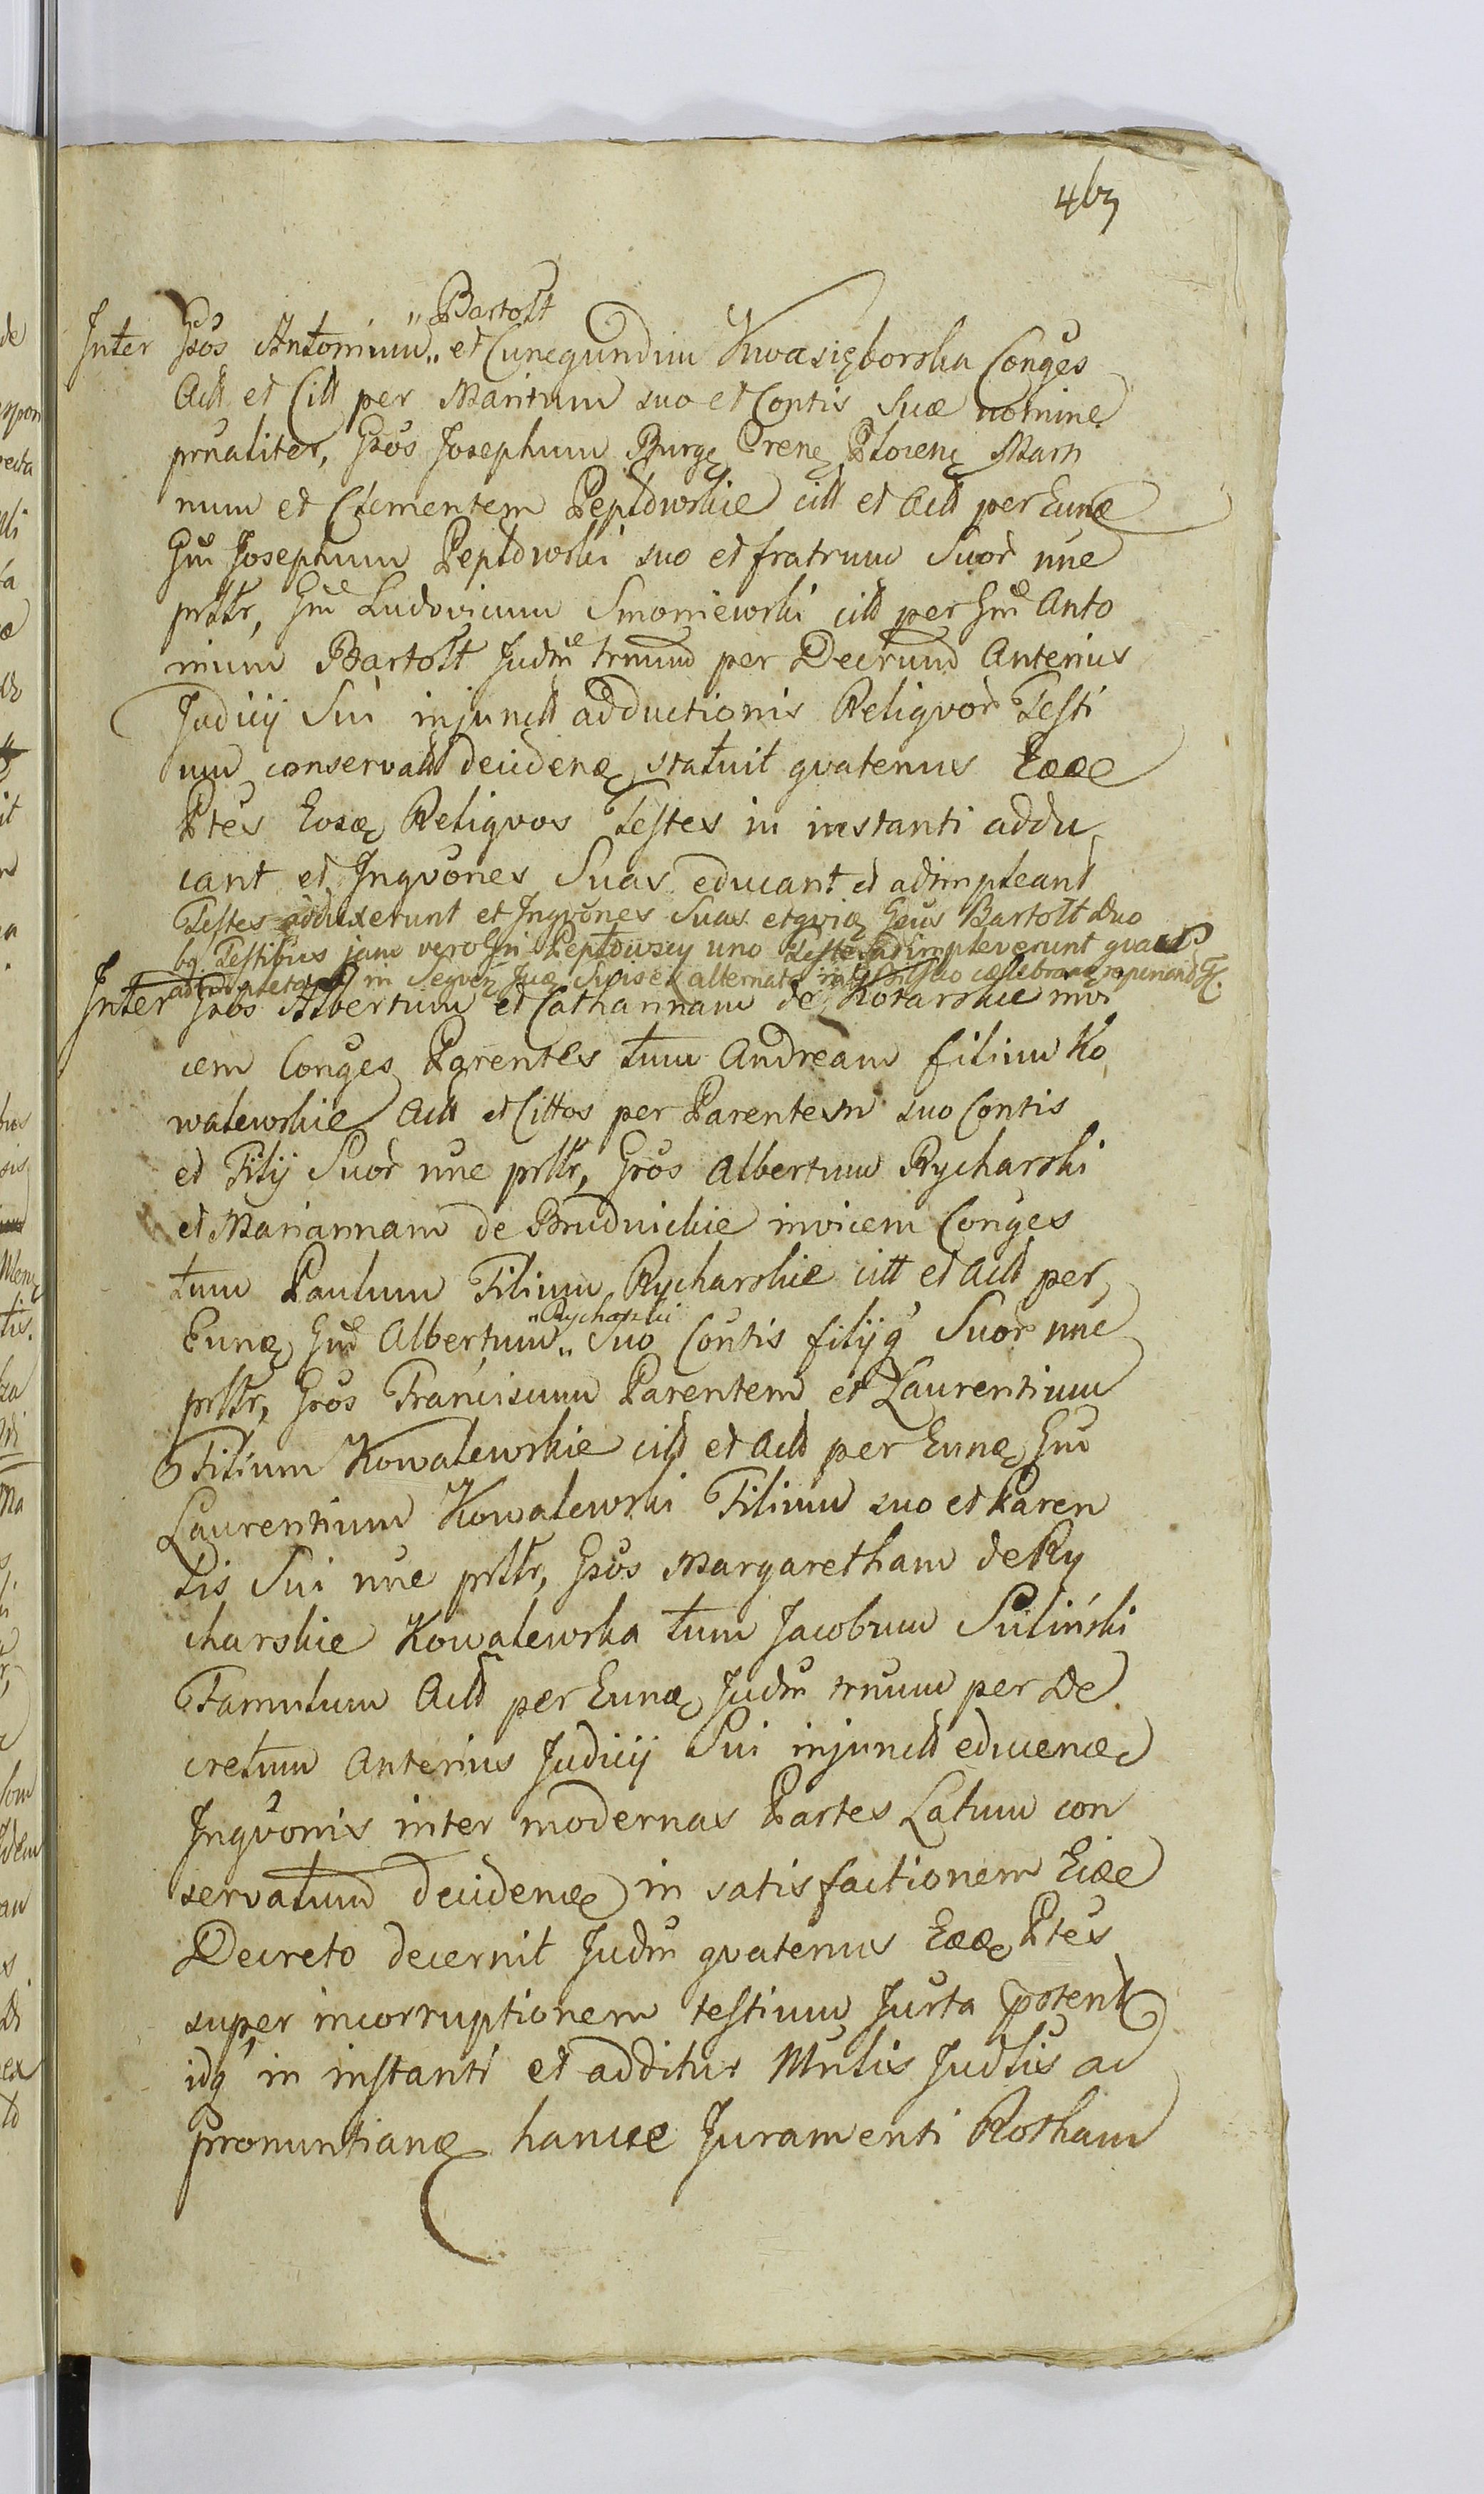 463
"Bartolt
Inter Gsos Antonium„ et Cunegundim Kwasięborska Conges
Act et Citt per Maritum suo et Contis Suæ nomine
prnaliter, Gsos Josephum Burgę Crenę Plocenę Marti
num et Clementem Peptowskie citt et Actt per Eunæ
Gm Josephum Peptowski suo et fratrum Suor nne
prttr, Gm Ludovicum Smoniewski citt per Gm Anto
nium Bartolt Judm trnum per Decrum Anterius
Judicij Sui injunctt adductionis Reliqvor Testi
um conservatt decidenę, statuit qvatenus Eææ
Ptes Eosæ Reliqvos Testes in instanti addu
cant et Inqvones Suas educant et adimpleant
Testes adduxerunt et Inqvones Suas etqviæ Gsus Bartolt duo
bq Testibus jam vero Gsi Peptowscy uno Teste adimpleverunt
in
Inter Gsos Albertum et Catharinam de Kotarskie invi
cem Conges Parentes tum Andream filium Ko
walewskie Actt et Cittos per Parentem suo Contis
et Filij Suor nne prttr, Gsos Albertum Rycharski
et Mariannam de Brudnickie invicem Conges
tum Paulum Filium Rycharskie citt et Actt per
"Rycharski
Eunæ Gm Albertum„ Suo Contis filijq Suor nne
prttr, Gsos Franciscum Parentem et Laurentium
Filium Kowalewskie citt et Actt per Eunæ Gm
Laurentium Kowalewski Filium suo et Paren
tis Sui nne prttr, Gsos Margaretham de Ry
charskie Kowalewska tum Jacobum Suliński
Famulum Actt per Eunæ Judm trnum per De
cretum Anterius Judicij Sui injunctt educenæ
Inqvonis inter modernas Partes Latum con
servatum decidenæ in satisfactionem Eiæe
Decreto decernit Judm qvatenus Eææ Ptes
super incorruptionem testium Jurta potent
idq in instanti et additur Mnlis Judlis ad
pronuntianæ hancce Juramenti Rotham